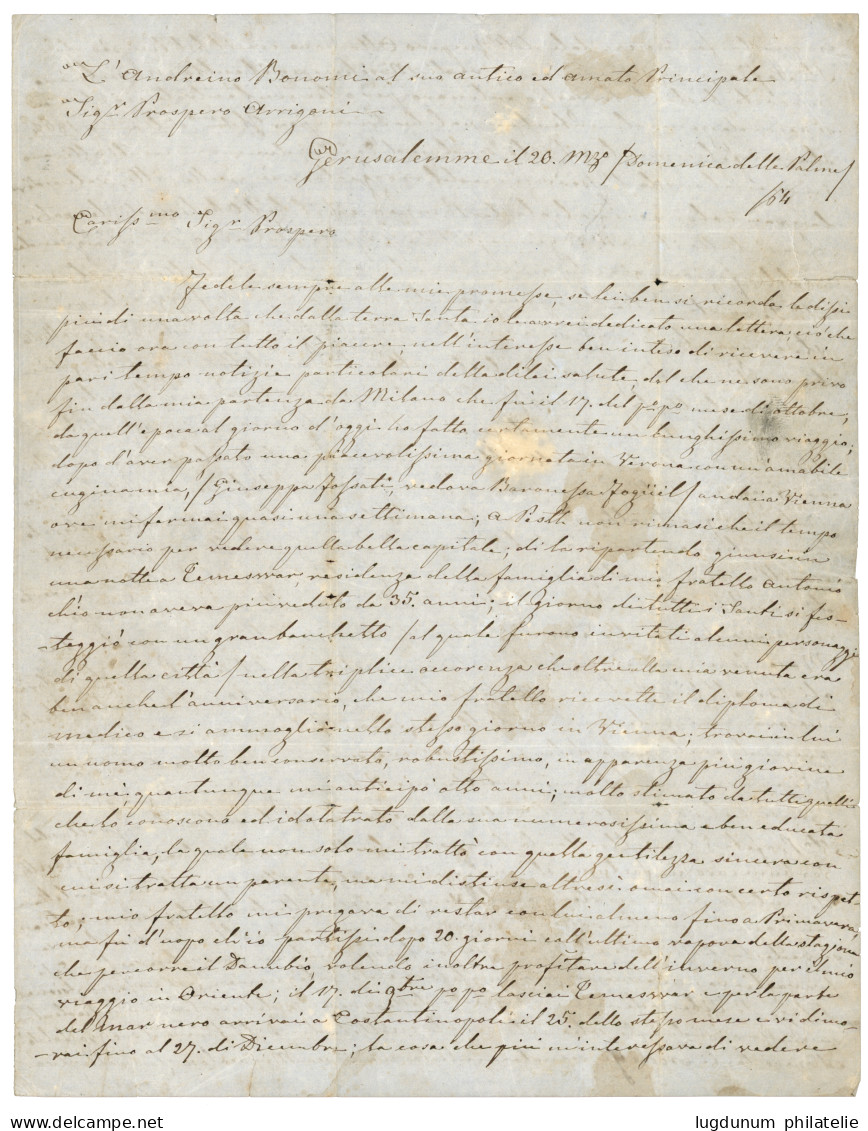 L'Andreino Bonomi al suo antico ed amato Principale
Sigr. Prospero Arrigoni
Gerusalemme il 20. Mzo /Domenica delle Palme/
/64
Carissmo Sigr Prospero
Fedele sempre alle mie promesse, se lei ben si ricorda le dissi
più di una volta che dalla terra Santa io le avrei dedicato una lettera, ciò che
faccio ora con tutto il piacere, nell'interesse ben inteso di ricevere in
pari tempo notizie particolari della di lei salute, del che ne sono privo
fin dalla mia partenza da Milano che fù il 17. del po. po. mese di ottobre,
da quell'epoca al giorno d'oggi ho fatto certamente un lunghissimo viaggio;
dopo d'aver passato una piacevolissima giornata in Verona con un'amabile
cugina mia, /Giuseppa Fossati, vedova Baronessa / andai a Vienna
ove mi fermai quasi una settimana; a Pesth non rimasi che il tempo
necessario per vedere quella bella capitale; di là ripartendo giunsi in
una notte a Temeswar, residenza della famiglia di mio fratello Antonio
ch'io non aveva più veduto da 35. anni; il giorno di tutti i Santi si fes-
-teggiò con un gran banchetto /al quale furono invitati alcuni personaggi
di quella città/ nella triplice accorenza che oltre alla mia venuta era
ben anche l'anniversario, che mio fratello ricevette il diploma di
medico e si ammogliò nello stesso giorno in Vienna; trovai in lui
un uomo molto ben conservato, robustissimo, in apparenza più giovine
di me, quantunque mi anticipò otto anni; molto stimato da tutti quelli
che lo conoscono ed idolatrato dalla sua numerosissima e ben educata
famiglia, la quale non solo mi trattò con quella gentilezza sincera con
cui si tratta un parente, ma mi distinse altresì con certo rispet-
to; mio fratello mi pregava di restar con lui almeno fino a Primavera,
ma fù d'uopo ch'io partissi dopo 20. giorni coll'ultimo vapore della stagione
che percorre il Danubio, volendo inoltre profitare dell'inverno per il mio
viaggio in Oriente; il 17. di 9bre po. po. lasciai Temeswar e per la parte
del mar nero arrivai a Costantinopoli il 25. dello stesso mese e vi dimo-
-rai fino al 27. di Dicembre; la cosa che più m'interessava di vedere
lugdunum philatelie